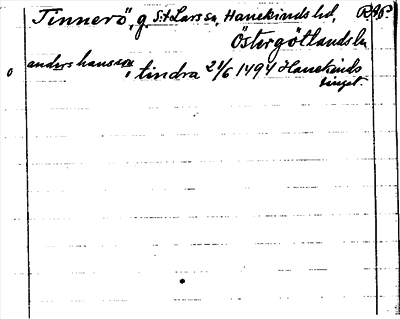 Tinnerö, g. S:t Lars sn, Hanekinds hd, RAP.
Östergötlands ln
anders hansson, tindra 21/6 1494 Hanekinds
tinget.